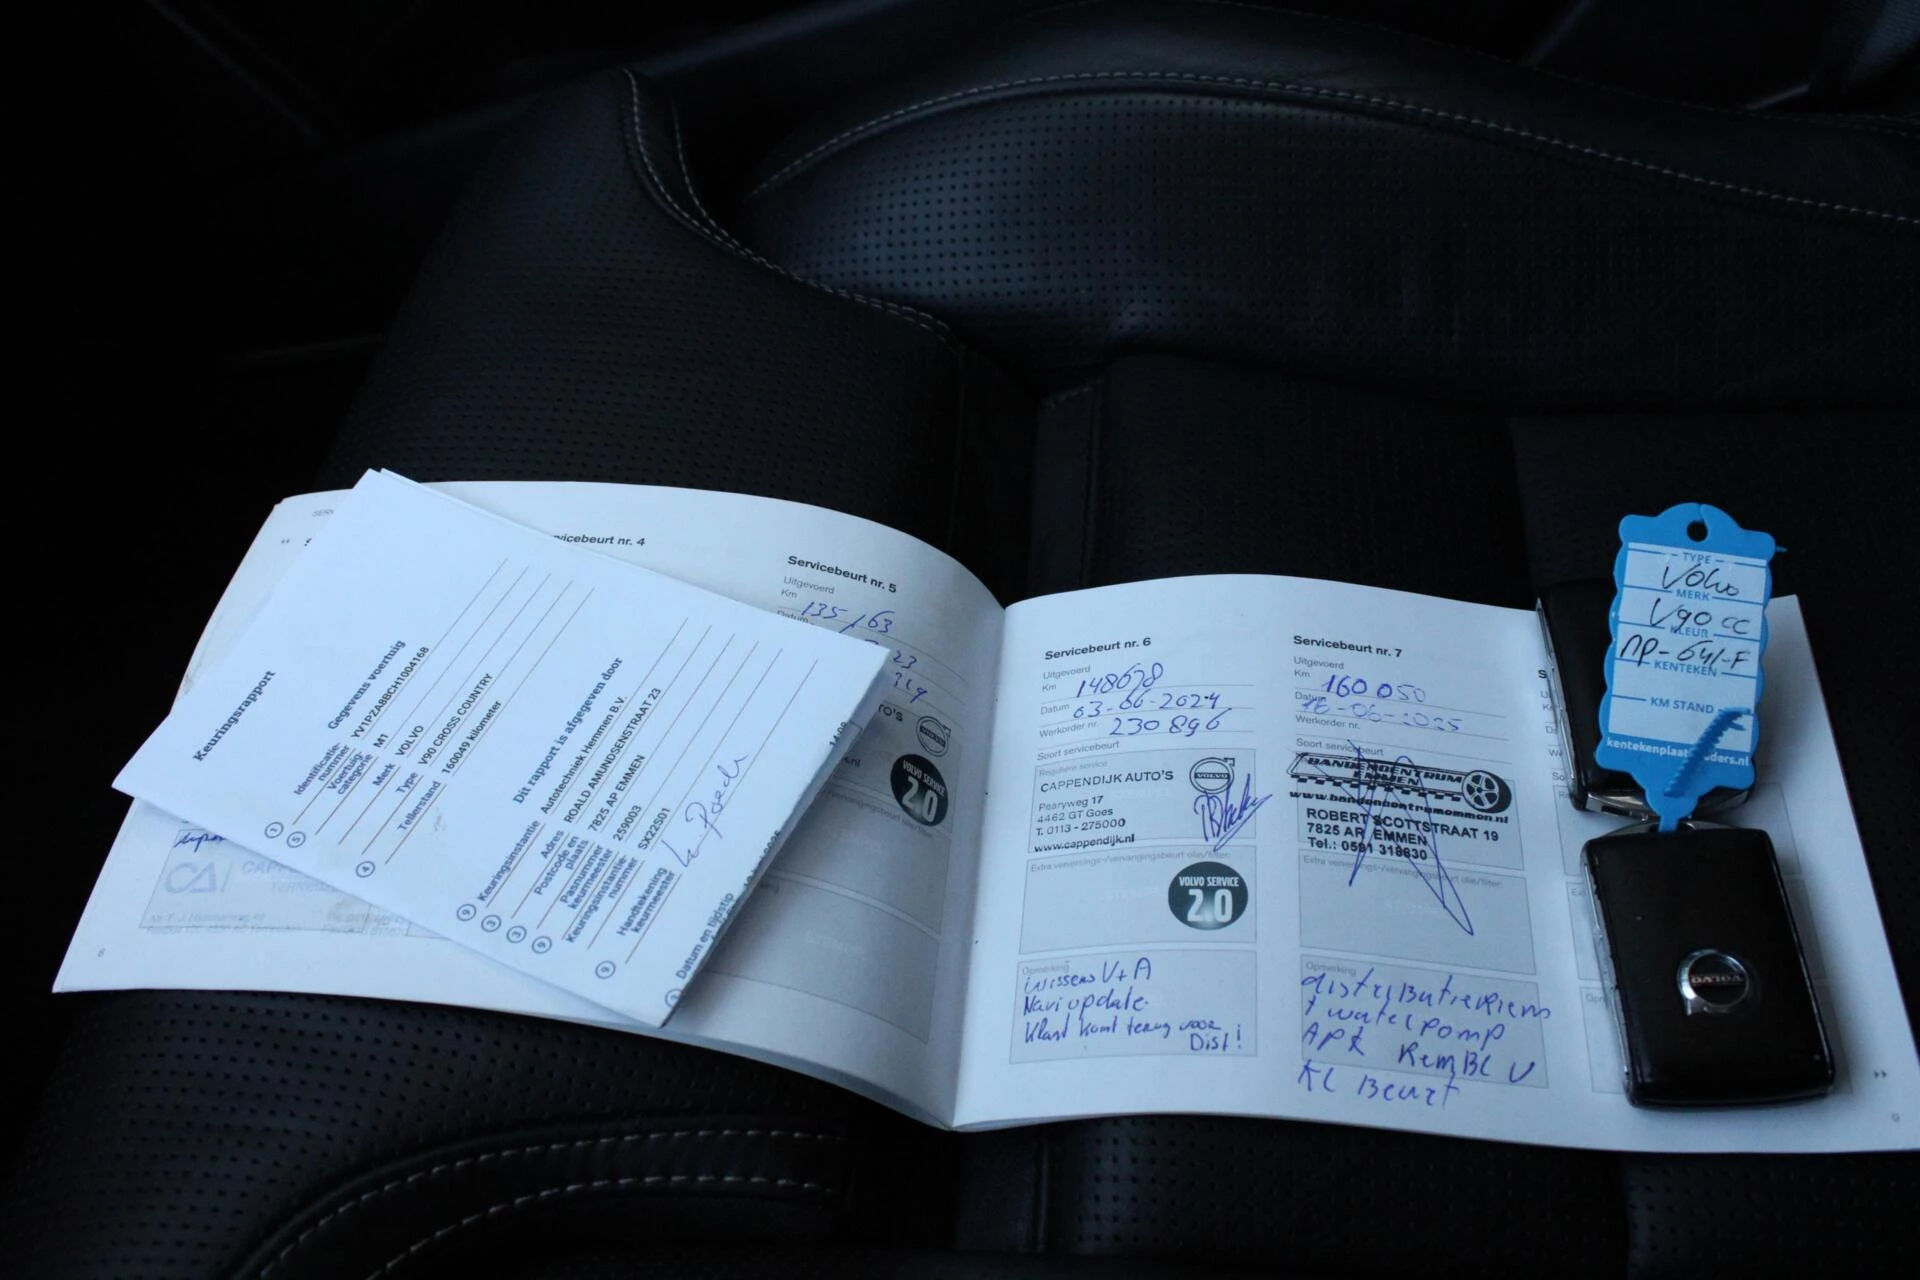 Keuringsrapport
Gegevens voertuig
Identificatie-
nummer YV1PZA8BCH1004168
Voertuig-
categorie M1
Merk VOLVO
Type V90 CROSS COUNTRY
Tellerstand 160049 kilometer
Dit rapport is afgegeven door
Keuringsinstantie Autotechniek Hemmen B.V.
Adres ROALD AMUNDSENSTRAAT 23
Postcode en
plaats 7825 AP EMMEN
Pasnummer
keurmeester 259003
Keuringsinstantie-
nummer SX22S01
Handtekening
keurmeester
Datum en tijdstip
Servicebeurt nr. 5
Uitgevoerd
Km 135163
Datum
VOLVO SERVICE
2.0
8
Servicebeurt nr. 6
Uitgevoerd
Km 148678
Datum 03-06-2024
Werkorder nr. 230896
Soort servicebeurt
Reguliere service
CAPPENDIJK AUTO'S
VOLVO
Pearyweg 17
4462 GT Goes
T. 0113 - 275000
www.cappendijk.nl
Extra verversings-/vervangingsbeurt olie/filter:
VOLVO SERVICE
2.0
Opmerking
wissers V+A
Navi update
Klant komt terug voor
Dist!
Servicebeurt nr. 7
Uitgevoerd
Km 160 050
Datum 16-06-2025
Werkorder nr.
Soort servicebeurt
BANDENCENTRUM
EMMEN
www.bandencentrumemmen.nl
ROBERT SCOTTSTRAAT 19
7825 AR EMMEN
Tel.: 0591 318630
Extra verversings-/vervangingsbeurt olie/filter:
Opmerking
distributieriem
+ waterpomp
APK RemBL V
KL Beurt
9
TYPE
Volvo
MERK
V90 CC
KLEUR
NP-641-F
KENTEKEN
KM STAND
VOLVO